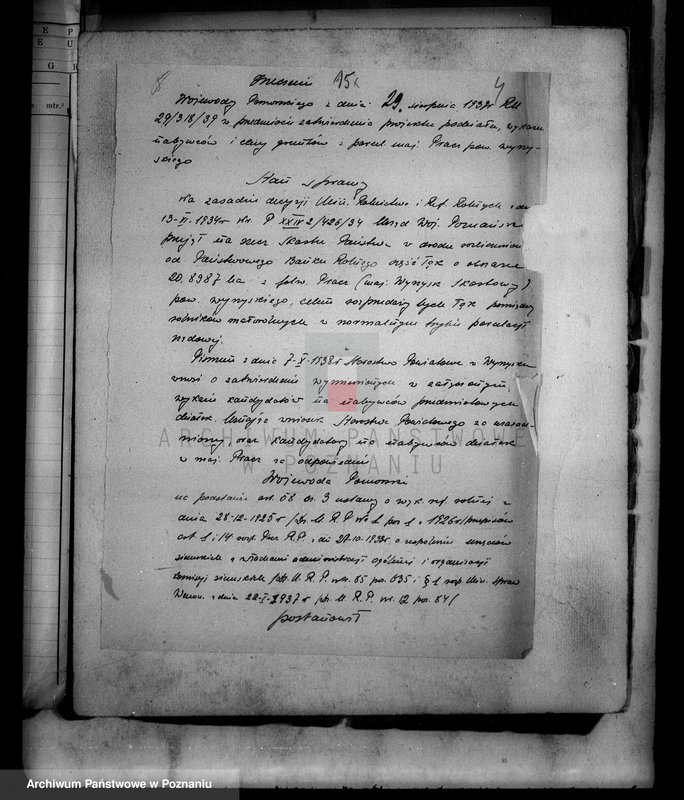 8 15 4
Orzeczenie
Wojewody Pomorskiego z dnia 29 sierpnia 1939r RU
29/318/39 w przedmiocie zatwierdzenia projektu podziału, wykazu
nabywców i ceny gruntów z parcel maj. Pracz pow. wyrzy-
skiego
Stan sprawy
Na zasadzie decyzji Min. Rolnictwa i Ref. Rolnych z dn
13-VI-1934r Nr. P XXIV 2/426/34 Urząd Woj. Poznański
przejął na rzecz Skarbu Państwa w drodze
od Państwowego Banku Rolnego część łąk o obszarze
20.8987 ha z folw. Pracz (maj. Wyrzysk Skarbowy)
pow. wyrzyskiego, celem rozprzedaży tych łąk pomiędzy
rolników małorolnych w normalnym trybie parcelacji
rządowej.
Pismem z dnia 7-X-1938r Starostwo Powiatowe w Wyrzysku
wnosi o zatwierdzenie wymienionych w załączonym
wykazie kandydatów na nabywców przedmiotowych
działek. Uznając wniosek Starostwa Powiatowego za uzasad-
niony oraz kandydatury na nabywców działek
w maj. Pracz za odpowiednie
Wojewoda Pomorski
na podstawie art. 68 ust. 3 ustawy o wyk. ref. rolnej z
dnia 28-12-1925r /Dz. U. R. P. Nr 1 poz 1 z 1926r/
art 1 i 14 rozp. Prez R.P. z dn 27-10-1933r o zespoleniu urzędów
ziemskich z władzami administracji ogólnej i organizacji
komisji ziemskich /Dz. U. R. P. nr. 85 poz. 635 i § 1 rozp Min. Spraw
Wewn. z dnia 22-I-1937r /Dz. U. R. P. nr. 12 poz. 84/
postanowił
ARCHIWUM PAŃSTWOWE
W POZNANIU
mtr.²
Archiwum Państwowe w Poznaniu